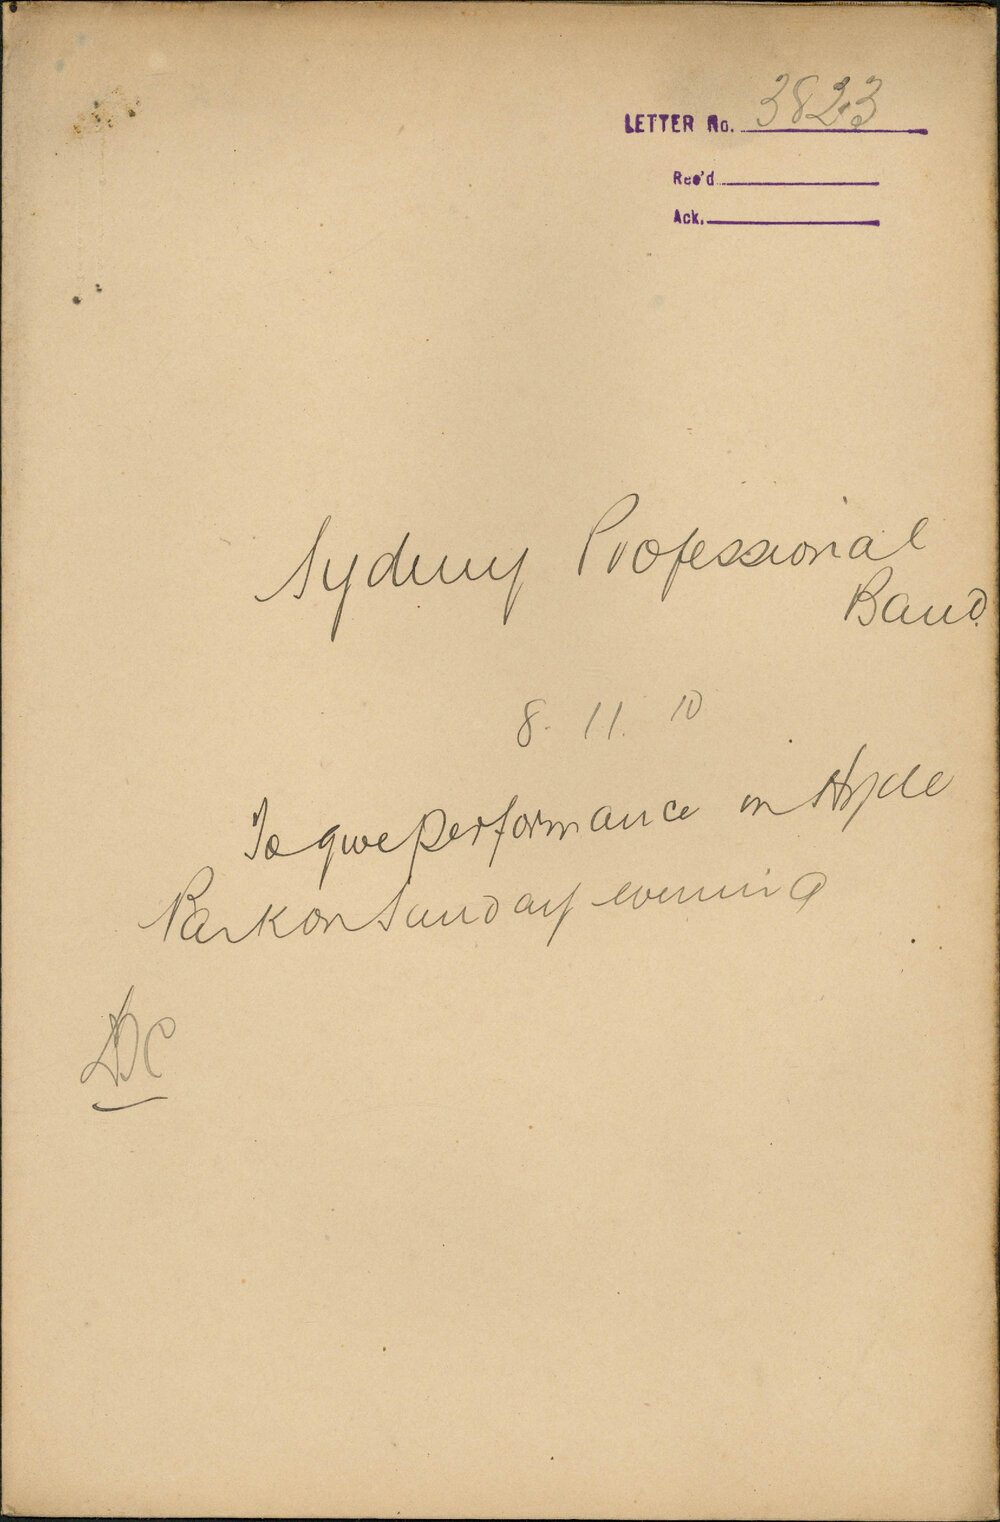 LETTER No. 3823
Rec'd
Ack.
Sydney Professional
Band.
8. 11. 10
To give performance in Hyde
Park on Sunday evening